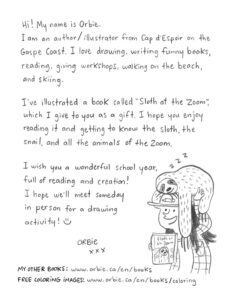 Hi! My name is Orbie.
I am an author/illustrator from Cap d'Espoir on the
Gaspe Coast. I love drawing, writing funny books,
reading, giving workshops, walking on the beach,
and skiing.
I've illustrated a book called "Sloth at the Zoom",
which I give to you as a gift. I hope you enjoy
reading it and getting to know the sloth, the
snail, and all the animals of the Zoom.
I wish you a wonderful school year,
full of reading and creation!
I hope we'll meet someday
in person for a drawing
activity!
z z z
ORBIE
x x x
MY OTHER BOOKS: www.orbie.ca/en/books
FREE COLORING IMAGES: www.orbie.ca/en/books/coloring